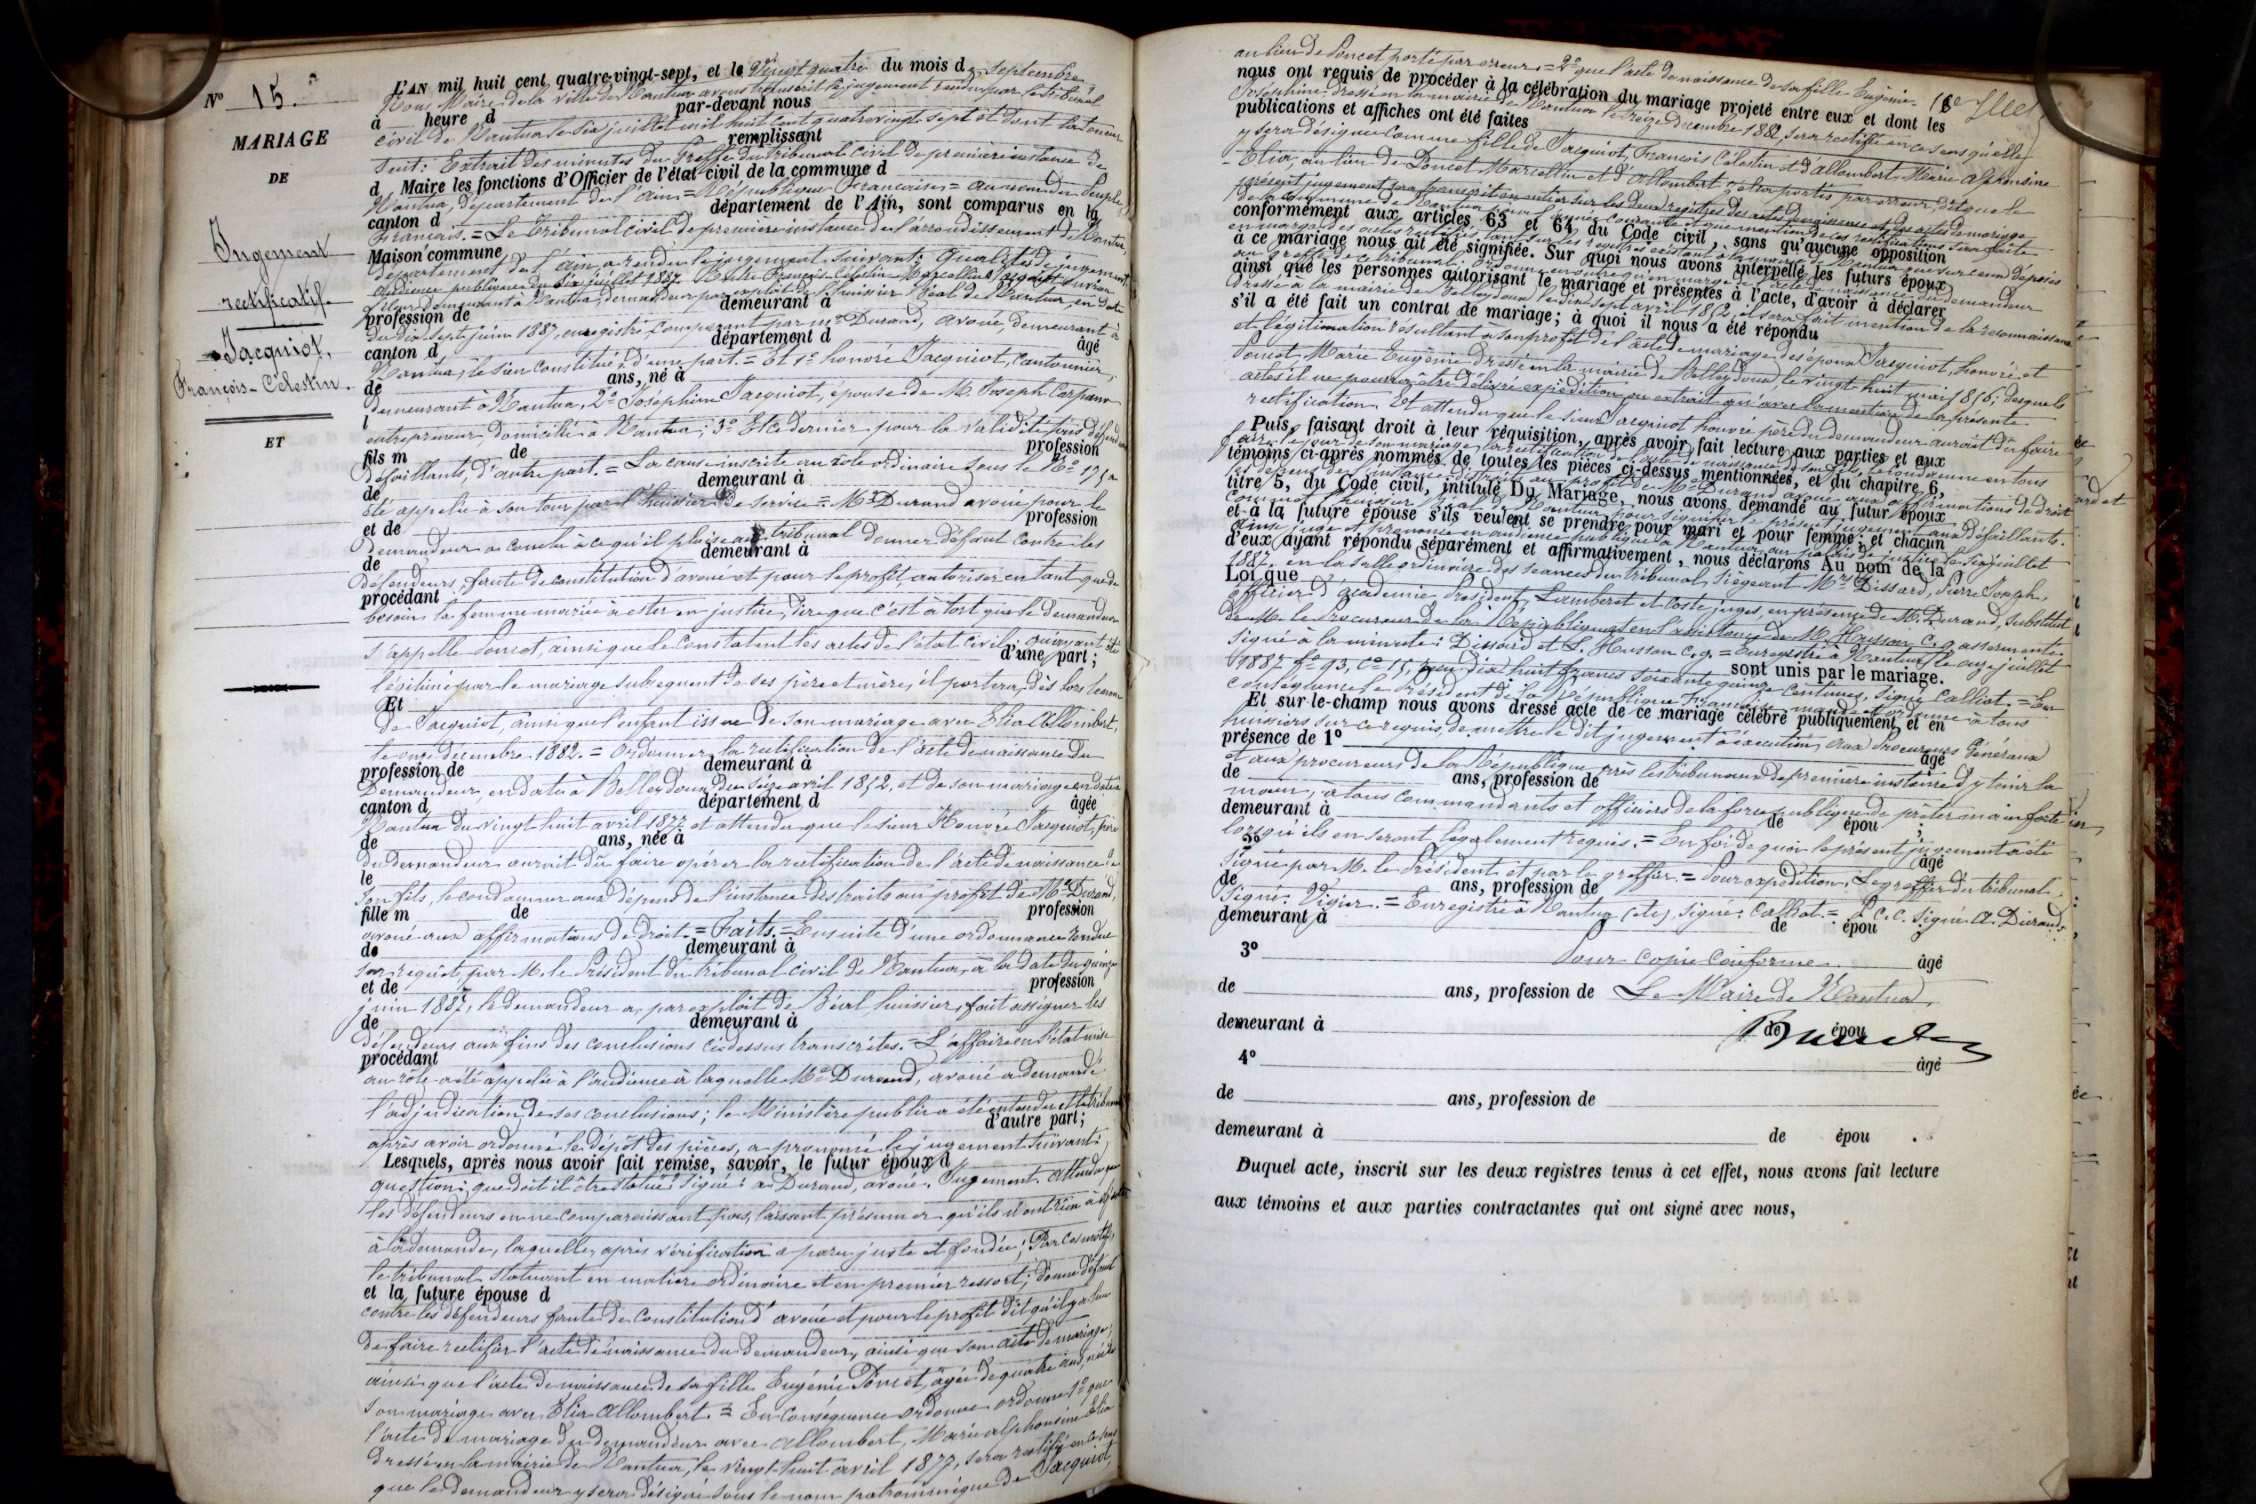 N° 15.
MARIAGE
DE
Jugement
rectificatif
Jacquiot,
François-Célestin.
ET
L'AN mil huit cent quatre-vingt-sept, et le Vingt quatre du mois de septembre
Nous, Maire de la Ville de Nantua avons transcrit le jugement rendu par le tribunal
à heure d par-devant nous
civil de Nantua le six juillet mil huit cent quatre vingt sept et dont la teneur
remplissant
suit: Extrait des minutes du Greffe du tribunal civil de première instance de
d Maire les fonctions d'Officier de l'état civil de la commune d
Nantua, département de l'Ain = République Française = au nom du Peuple
canton d département de l'Ain, sont comparus en la
Français. = Le Tribunal civil de première instance de l'arrondissement de Nantua,
Maison commune
département de l'Ain, a rendu le jugement suivant: Qualités de jugement
audience publique du six juillet 1887. Entre François Célestin Marcellin Jacquiot ouvrier
demeurant à Nantua, demandeur par exploit de l'huissier Béal de Nantua en date
profession de demeurant à
du dix sept juin 1887, enregistré, comparant par Me Durand, avoué, demeurant à
canton d département d âgé
Nantua, le sien constitué, d'une part. = Et 1° honoré Jacquiot, cantonnier,
de ans, né à
demeurant à Nantua, 2° Josephine Jacquiot, épouse de M. Joseph
l
entrepreneur, domicilié à Nantua; 3° Et ce dernier pour la validité, tous défendeurs
fils m de profession
défaillants, d'autre part. = La cause inscrite au rôle ordinaire sous le N° 175 a
de demeurant à
été appelée à son tour par l'huissier de service = Me Durand avoué pour le
et de profession
demandeur a conclu à ce qu'il plaise au tribunal donner défaut contre les
de demeurant à
défendeurs, faute de constitution d'avoué et pour le profit, autoriser en tant que de
procédant
besoin la femme mariée à ester en justice, dire que c'est à tort que le demandeur
s'appelle Poncet, ainsi que le constatent les actes de l'état civil; qu'ayant été
d'une part;
légitimé par le mariage subséquent de ses père et mère, il portera dès lors le nom
Et
de Jacquiot, ainsi que l'enfant issue de son mariage avec Elia Allombert,
le onze décembre 1882. = Ordonner la rectification de l'acte de naissance du
profession de demeurant à
Demandeur, en date à Belleydoux du seize avril 1852, et de son mariage en date à
canton d département d âgée
Nantua du vingt huit avril 1877 et attendu que le sieur Honoré Jacquiot, père
de ans, née à
du demandeur aurait dû faire opérer la rectification de l'acte de naissance de
le
son fils, le condamner aux dépens de l'instance distraits au profit de Me Durand,
fille m de profession
avoué aux affirmations de droit. = Faits. = Ensuite d'une ordonnance rendue
de demeurant à
sur requête par M. le Président du tribunal civil de Nantua, à la date du quinze
et de profession
juin 1887, le demandeur a, par exploit de Béal huissier, fait assigner les
de demeurant à
défendeurs aux fins des conclusions ci-dessus transcrites. = L'affaire en l'état mise
procédant
au rôle a été appelée à l'audience à laquelle Me Durand, avoué a demandé
l'adjudication de ses conclusions; le Ministère public a été entendu et le tribunal
d'autre part;
après avoir ordonné le dépôt des pièces, a prononcé le jugement suivant:
Lesquels, après nous avoir fait remise, savoir, le futur époux d
question: que doit-il être statué? Signé: A. Durand, avoué. Jugement. Attendu que
les défendeurs en ne comparaissant pas, laissent présumer qu'ils n'ont rien à objecter
à la demande, laquelle, après vérification a paru juste et fondée; Par ces motifs,
le tribunal statuant en matière ordinaire et en premier ressort; donne défaut
et la future épouse d
contre les défendeurs faute de constitution d'avoué et pour le profit dit qu'il y a lieu
de faire rectifier l'acte de naissance du demandeur, ainsi que son acte de mariage,
ainsi que l'acte de naissance de sa fille Eugénie Poncet, âgée de quatre ans, née de
son mariage avec Elia Allombert. = En conséquence ordonne ordonne 1° que
l'acte de mariage du demandeur avec Allombert, Marie Alphonsine Elia
dressé en la mairie de Nantua, le vingt-huit avril 1877, sera rectifié en ce sens
que le demandeur y sera désigné sous le nom patronymique de Jacquiot,
au lieu de Poncet porté par erreur = 2° que l'acte de naissance de sa fille Eugénie
nous ont requis de procéder à la célébration du mariage projeté entre eux et dont les
Josephine dressé en la mairie de Nantua le treize décembre 1882, sera rectifié en ce sens qu'elle
publications et affiches ont été faites
y sera désignée comme fille de Jacquiot, François Célestin et d'Allombert Marie Alphonsine
Elia, au lieu de Poncet Marcellin et d'Allombert Elia portés par erreur, dit que le
présent jugement sera transcrit en entier sur les deux registres des actes de naissance et des actes de mariage
conformément aux articles 63 et 64 du Code civil, sans qu'aucune opposition
à ce mariage nous ait été signifiée. Sur quoi nous avons interpellé les futurs époux
ainsi que les personnes autorisant le mariage et présentes à l'acte, d'avoir à déclarer
dressé à la mairie de Belleydoux le dix sept avril 1852, il sera fait mention de la reconnaissance
s'il a été fait un contrat de mariage; à quoi il nous a été répondu
et légitimation résultant à son profit de l'acte de mariage des époux Jacquiot, honoré et
Poncet, Marie Eugénie dressé en la mairie de Belleydoux, le vingt huit mai 1856; desquels
actes il ne pourra être délivré expédition ou extrait qu'avec la mention de la présente
rectification. Et attendu que le sieur Jacquiot honoré père du demandeur aurait dû faire
Puis, faisant droit à leur réquisition, après avoir fait lecture aux parties et aux
témoins ci-après nommés de toutes les pièces ci-dessus mentionnées, et du chapitre 6,
titre 5, du Code civil, intitulé Du Mariage, nous avons demandé au futur époux
et à la future épouse s'ils veulent se prendre pour mari et pour femme; et chacun
ainsi jugé et prononcé en audience publique à Nantua au palais de justice le six juillet
d'eux ayant répondu séparément et affirmativement, nous déclarons Au nom de la
1887, en la salle ordinaire des séances du tribunal, siégeant Mrs Dissard, Pierre Joseph,
Loi que
officier d'académie, Président, Lamberet et Coste juges, en présence de M. Durand, substitut
de M. le Procureur de la République et en l'assistance de M. Husson c. g. assermenté.
Signé à la minute: Dissard et L. Husson c. g. = Enregistré à Nantua, le onze juillet
1887 f° 93, c° 15, reçu dix huit francs soixante quinze centimes. signé Calliot. = En
sont unis par le mariage.
conséquence le Président de la République Française mande et ordonne à tous
Et sur-le-champ nous avons dressé acte de ce mariage célébré publiquement, et en
huissiers sur ce requis, de mettre le dit jugement à exécution, aux Procureurs Généraux
présence de 1° âgé
et aux procureurs de la République près les tribunaux de première instance d'y tenir la
de ans, profession de
main, à tous commandants et officiers de la force publique de prêter main forte
demeurant à de épou ;
lorsqu'ils en seront légalement requis. = En foi de quoi le présent jugement a été
2° âgé
signé par M. le Président et par le greffier. = Pour expédition, Le greffier du tribunal
de ans, profession de
signé. Vigier. = Enregistré à Nantua (etc) signé: Calliot. = P. C. C. signé A. Durand.
demeurant à de épou ;
3° Pour copie conforme âgé
de ans, profession de Le Maire de Nantua,
demeurant à de épou
4° âgé
de ans, profession de
demeurant à de épou .
Duquel acte, inscrit sur les deux registres tenus à cet effet, nous avons fait lecture
aux témoins et aux parties contractantes qui ont signé avec nous,